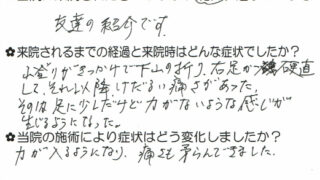 友達の紹介です。
✿来院されるまでの経過と来院時はどんな症状でしたか？
山登りがきっかけで下山の折り、右足が硬直
して、それ以降けだるい痛さがあった。
その後足に少しだけど力がないような感じが
生じるようになった。
✿当院の施術により症状はどう変化しましたか？
力が入るようになり、痛さも柔らんできました。